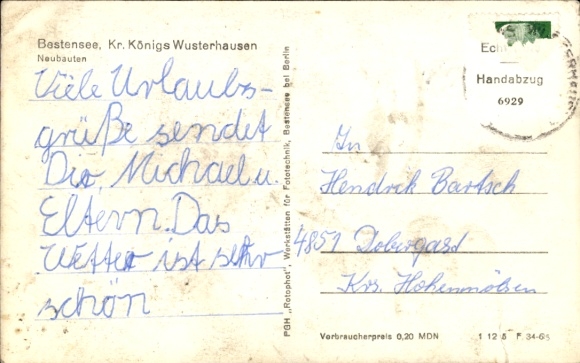 Bestensee, Kr. Königs Wusterhausen
Neubauten
Viele Urlaubs-
grüße sendet
Dir, Michael u.
Eltern. Das
Wetter ist sehr
schön
PGH „Rotophot", Werkstätten für Fototechnik, Bestensee bei Berlin
Echt
Handabzug
6929
In
Hendrik Bartsch
4851 Dobergast
Krs. Hohenmölsen
Verbraucherpreis 0,20 MDN